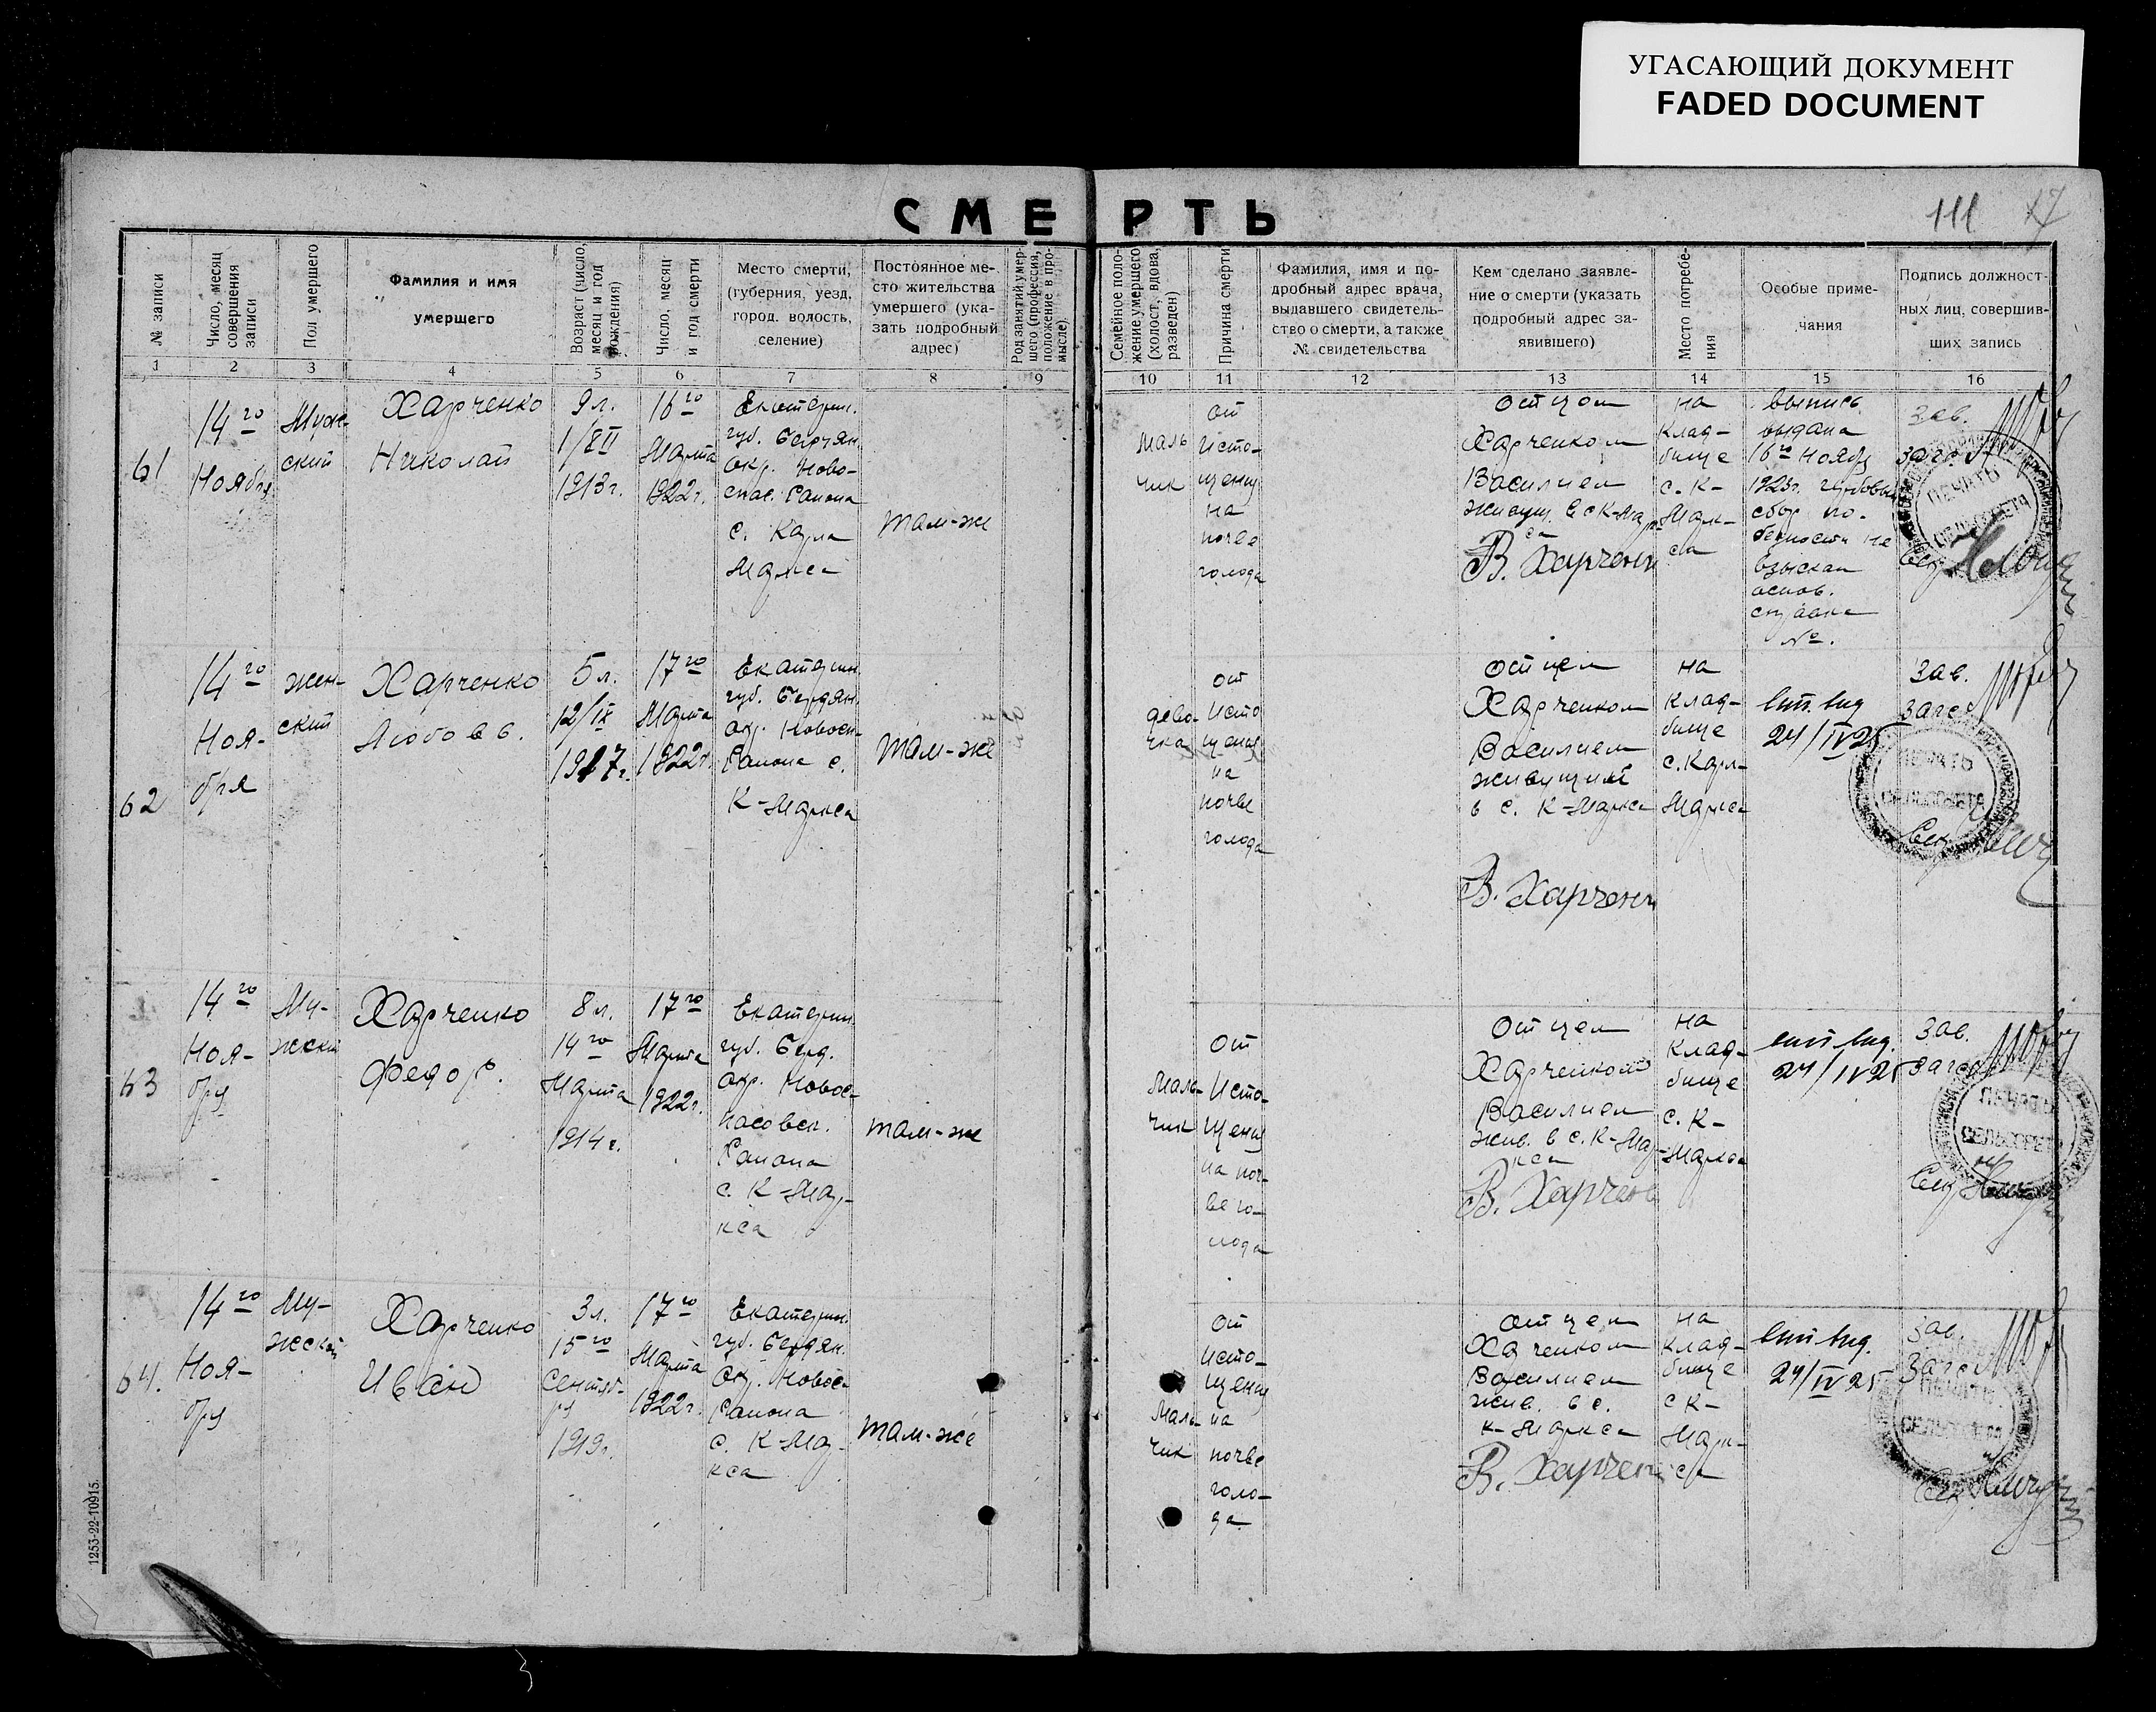 УГАСАЮЩИЙ ДОКУМЕНТ
FADED DOCUMENT
СМЕРТЬ
111
17
№ записи
Число, месяц
совершения
записи
Пол умершего
Фамилия и имя
умершего
Возраст (число,
месяц и год
рождения)
Число, месяц
и год смерти
Место смерти,
(губерния, уезд,
город, волость,
селение)
Постоянное ме-
сто жительства
умершего (ука-
зать подробный
адрес)
Род занятий умер-
шего (профессия,
положение в про-
мысле).
Семейное поло-
жение умершего
(холост, вдова,
разведен)
Причина смерти
Фамилия, имя и по-
дробный адрес врача,
выдавшего свидетель-
ство о смерти, а также
№ свидетельства
Кем сделано заявле-
ние о смерти (указать
подробный адрес за-
явившего)
Место погребе-
ния
Особые приме-
чания
Подпись должност-
ных лиц, совершив-
ших запись
1 2 3 4 5 6 7 8 9 10 11 12 13 14 15 16
61
14го
Ноября
Муж-
ский
Харченко
Николай
9 л.
1/XII
1913 г.
16го
Марта
1922 г.
Екатерин.
губ. Бердян.
окр. Ново-
спас. Района
с. Карла
Маркса
там-же
Маль
чик
от
Исто-
щения
на
почве
голода
отцом
Харченком
Василием
живущ. в с К-Мар-
са
В. Харченк
на
Клад-
бище
с. К-
Марк-
са
выпись
выдана
16го Ноября
1923 г. гербовый
сбор по
бедности не
взыскан
основ.
справка
№.
Зав.
Загс
ПЕЧАТЬ
СЕЛЬСОВЕТА
Сек
62
14го
Ноя-
бря
жен-
ский
Харченко
Любовь.
5 л.
12/IX
1917 г.
17го
Марта
1922 г.
Екатерин.
губ. Бердян.
окр. Новосп.
Района с.
К-Маркса
там-же
дево-
чка
от
Исто
щения
на
почве
голода
отцем
Харченком
Василием
живущий
в с. К-Маркса
В. Харченк
на
Клад-
бище
с. Карл-
Маркса
вып. выд
24/IV 25
Зав.
Загс
ПЕЧАТЬ
СЕЛЬСОВЕТА
Сек
63
14го
Ноя-
бря
Му-
жский
Харченко
Федор.
8 л.
14го
Марта
1914 г.
17го
Марта
1922 г.
Екатерин.
губ. Берд.
окр. Новос-
пасовск.
Района
с. К-Мар-
кса
там-же
Маль-
чик
От
Исто-
щения
на поч-
ве го-
лода
Отцем
Харченком
Василием
жив. в с. К-Мар-
кса
В. Харченк
на
Клад-
бище
с. К-
Маркса
вып выд.
24/IV 25
Зав.
Загс
ПЕЧАТЬ
СЕЛЬСОВЕТА
Сек
64.
14го
Ноя-
бря
Му-
жской
Харченко
Иван
3 л.
15го
Сентяб-
ря
1919 г.
17го
Марта
1922 г.
Екатерин.
губ. Бердян.
окр. Новосп
Района
с. К-Мар-
кса
там-же
Маль-
чик
от
Исто-
щения
на
почве
голо-
да
отцем
Харченком
Василием
жив. в с.
К-Маркса
В. Харченк
на
Клад-
бище
с К-
Марк-
са
вып выд.
24/IV 25
Зав.
Загс
ПЕЧАТЬ
СЕЛЬСОВЕТА
Сек
1253-22-10915